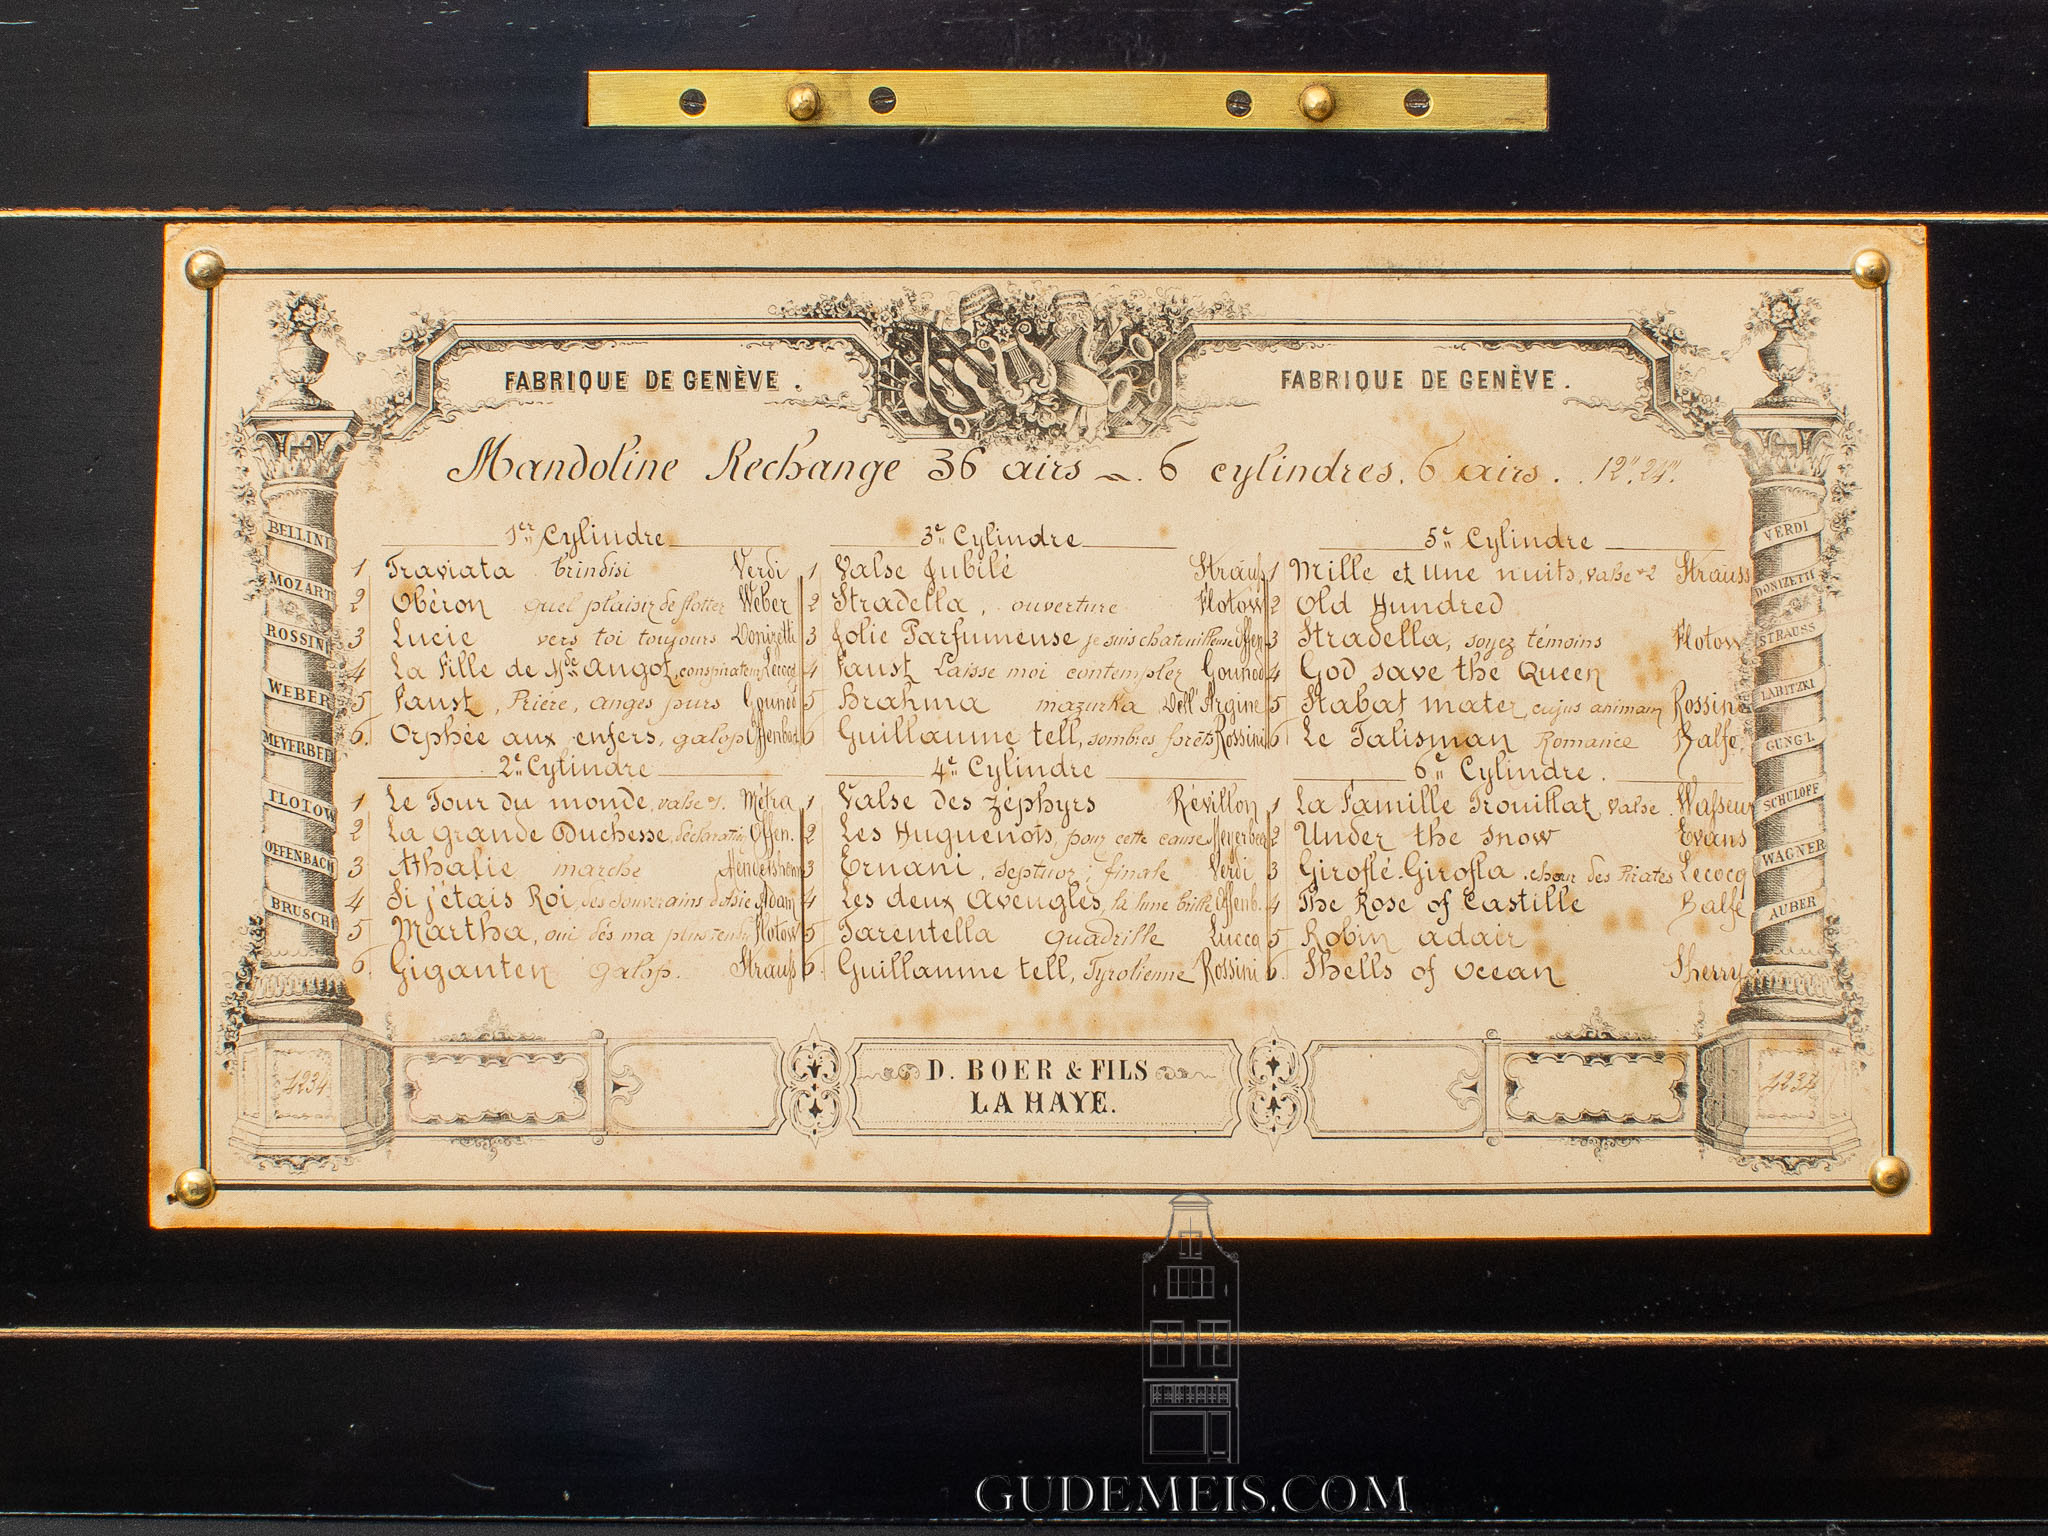 FABRIQUE DE GENÈVE .
FABRIQUE DE GENÈVE .
Mandoline Rechange 36 airs ~. 6 cylindres. 6 airs. 12". 24".
BELLINI
MOZART
ROSSINI
WEBER
MEYERBEE
FLOTOW
OFFENBACH
BRUSCH
1er Cylindre
1 Traviata brindisi Verdi
2 Obéron quel plaisir de flotter Weber
3 Lucie vers toi toujours Donizetti
4 La Fille de Mde angot, conspirateurs Lecocq
5 Faust, Prière, anges purs Gounod
6. Orphée aux enfers, galop Offenbach
2e Cylindre
1 Le Tour du monde, valse Métra
2 La grande Duchesse, déclaration Offen.
3 Athalie marche
4 Si j'étais Roi, des souverains d'Asie Adam
5 Martha, oui dès ma plus tendre Flotow
6. Giganten galop. Strauss
3e Cylindre
1 Valse Jubilé Strauss
2 Stradella, ouverture Flotow
3 Jolie Parfumeuse je suis chatouilleuse Offen
4 Faust Laisse moi contempler Gounod
5 Brahma mazurka Dell'Argine
6 Guillaume tell, sombres forêts Rossini
4e Cylindre
1 Valse des zéphyrs Révillon
2 Les Huguenots, pour cette cause Meyerbeer
3 Ernani, septuor, finale Verdi
4 Les deux Aveugles, la lune brille Offenb.
5 Tarentella Quadrille Luccq
6. Guillaume tell, Tyrolienne Rossini
5e Cylindre
1 Mille et une nuits, valse n°2 Strauss
2 Old Hundred
3 Stradella, soyez témoins Flotow
4 God save the Queen
5 Stabat mater, cujus animam Rossini
6 Le Talisman Romance Balfe
6e Cylindre.
1 La Famille Trouillat, valse. Vasseur
2 Under the snow Evans
3 Giroflé. Girofla. chœur des Pirates Lecocq
4 The Rose of Castille Balfe
5 Robin adair
6. Shells of ocean Sherry
VERDI
DONIZETTI
STRAUSS
LABITZKI
GUNG'L
SCHULOFF
WAGNER
AUBER
4234
D. BOER & FILS
LA HAYE.
4234
GUDEMEIS.COM